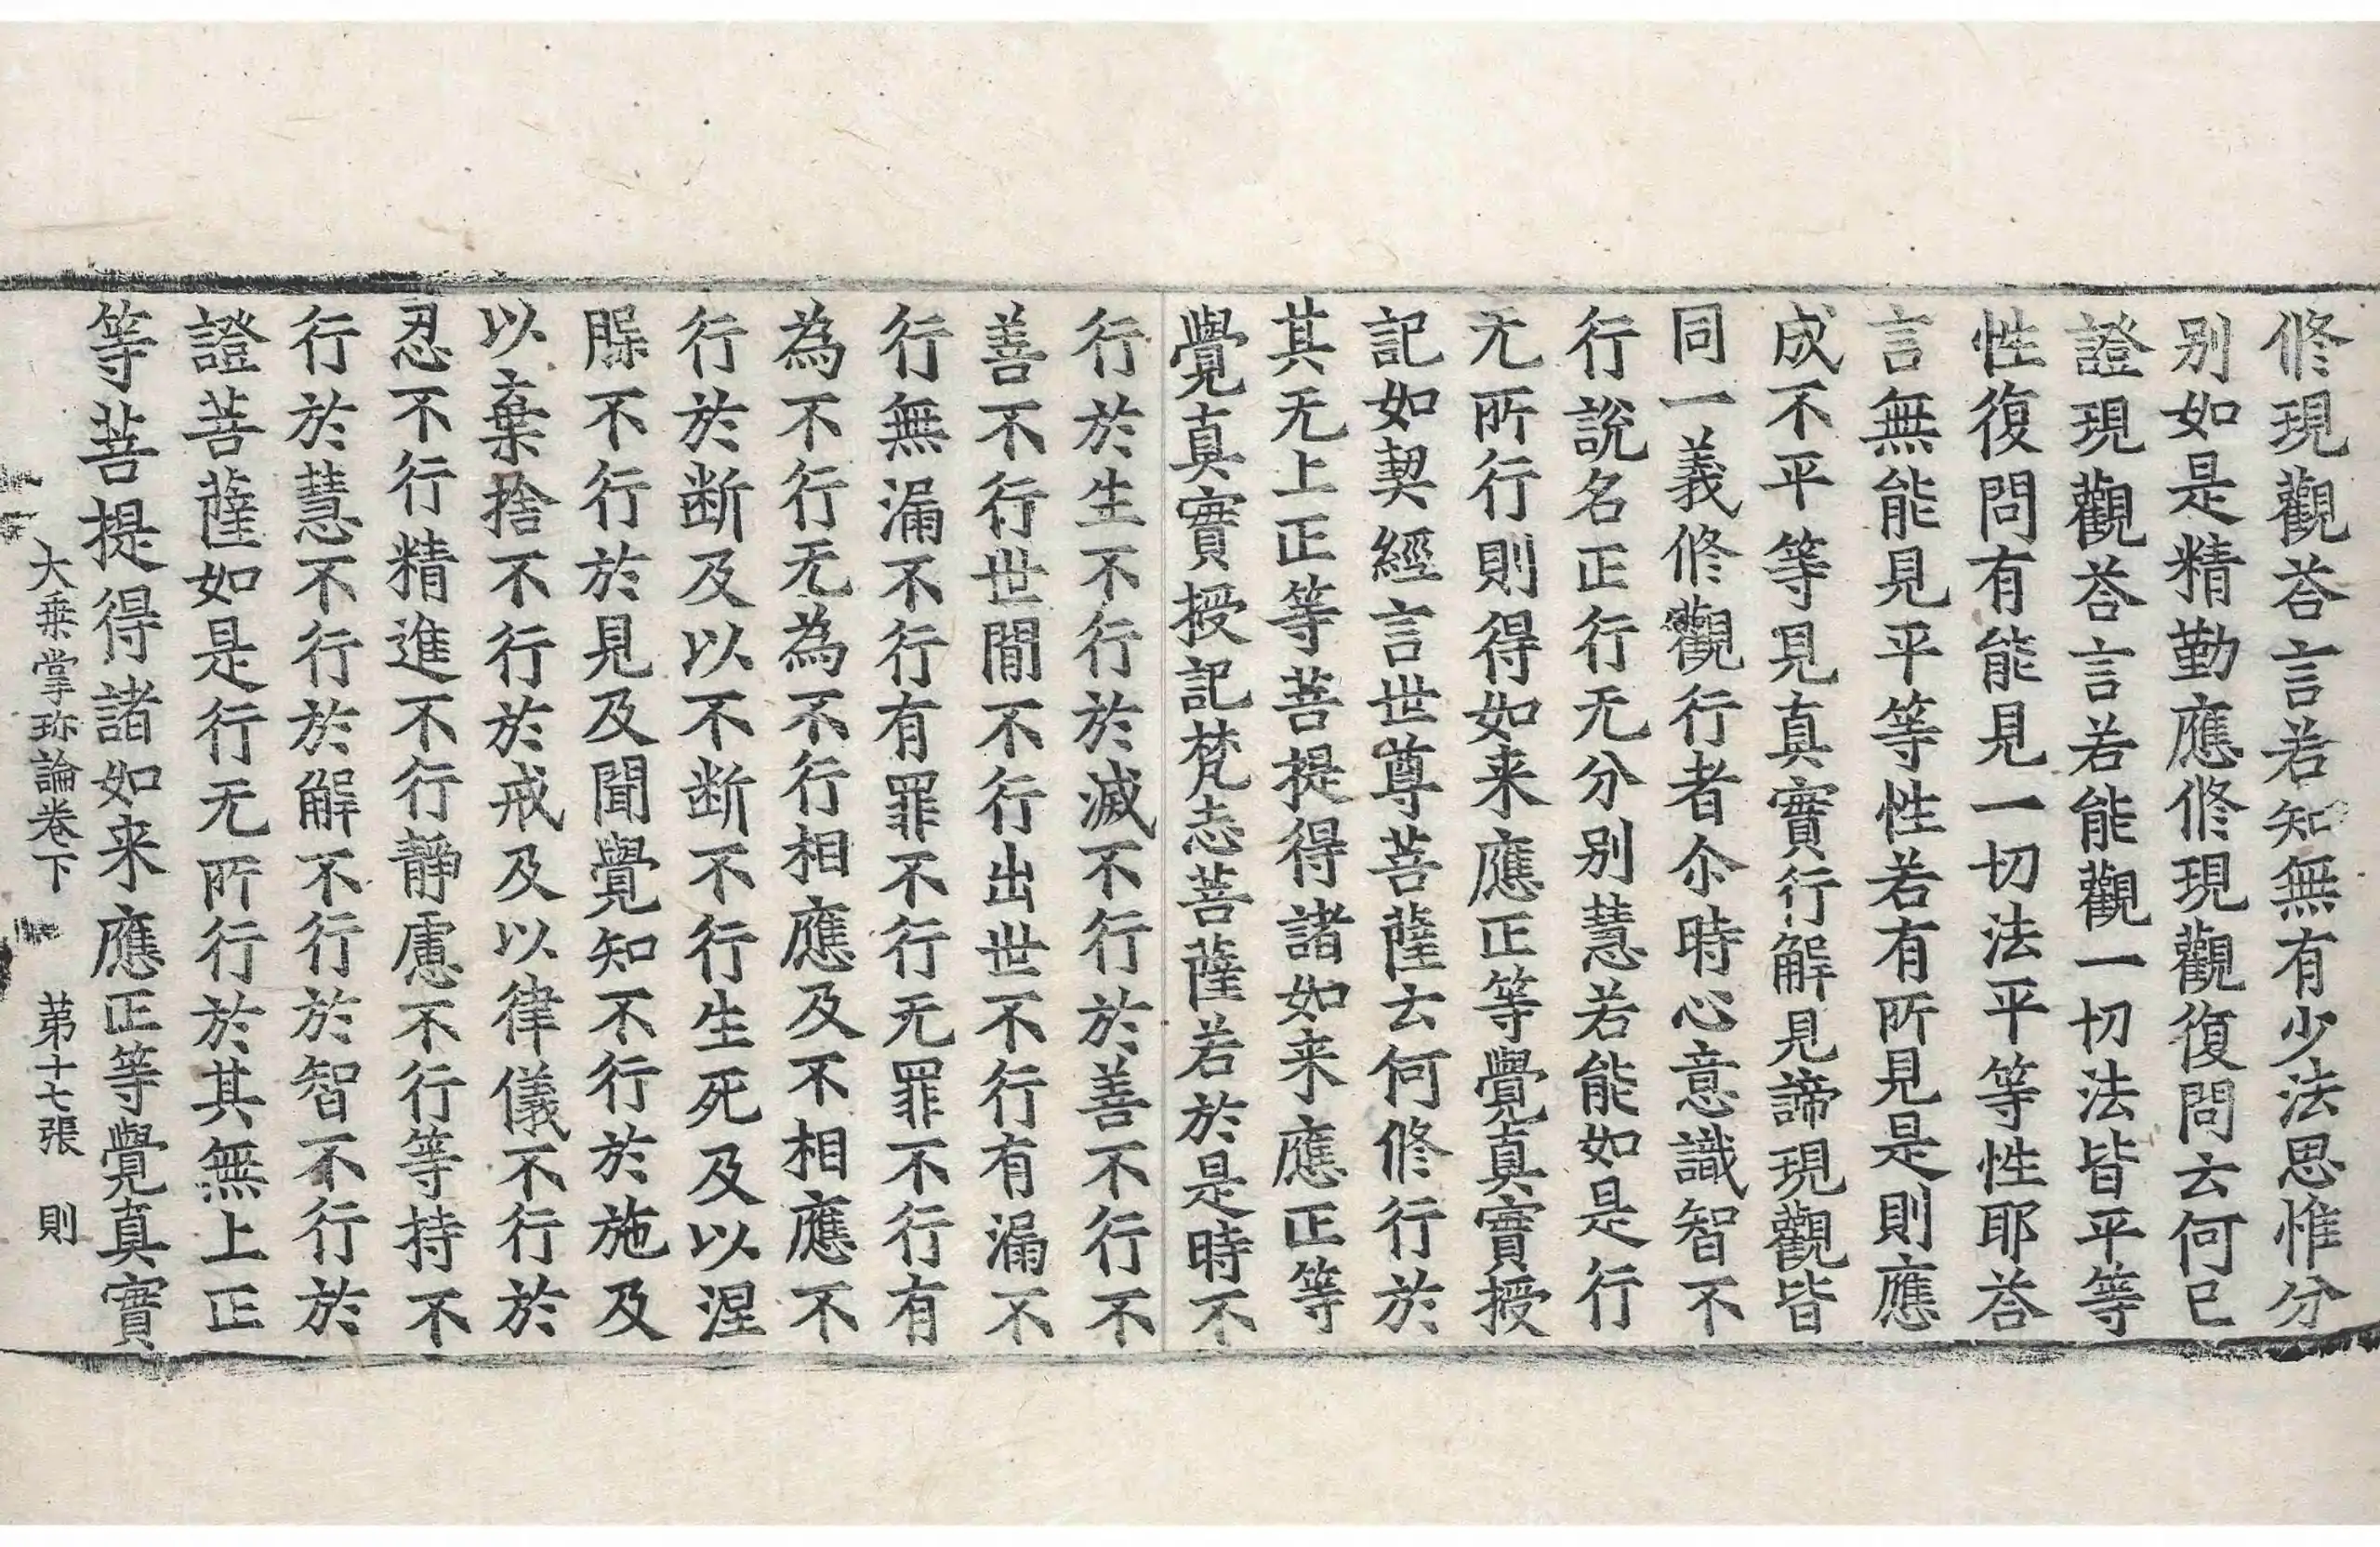 修現觀荅言若知無有少法思惟分
别如是精勤應修現觀復問云何已
證現觀荅言若能觀一切法皆平等
性復問有能見一切法平等性耶荅
言無能見平等性若有所見是則應
成不平等見真實行解見諦現觀皆
同一義修觀行者尒時心意識智不
行說名正行无分别慧若能如是行
无所行則得如来應正等覺真實授
記如契經言世尊菩薩云何修行於
其无上正等菩提得諸如来應正等
覺真實授記梵志菩薩若於是時不
行於生不行於滅不行於善不行不
善不行世間不行出世不行有漏不
行無漏不行有罪不行无罪不行有
為不行无為不行相應及不相應不
行於断及以不断不行生死及以涅
不行於見及聞覺知不行於施及
以棄捨不行於戒及以律儀不行於
忍不行精進不行静慮不行等持不
行於慧不行於解不行於智不行於
證菩薩如是行无所行於其無上正
等菩提得諸如来應正等覺真實
大乗掌珎論卷下 苐十七張 則